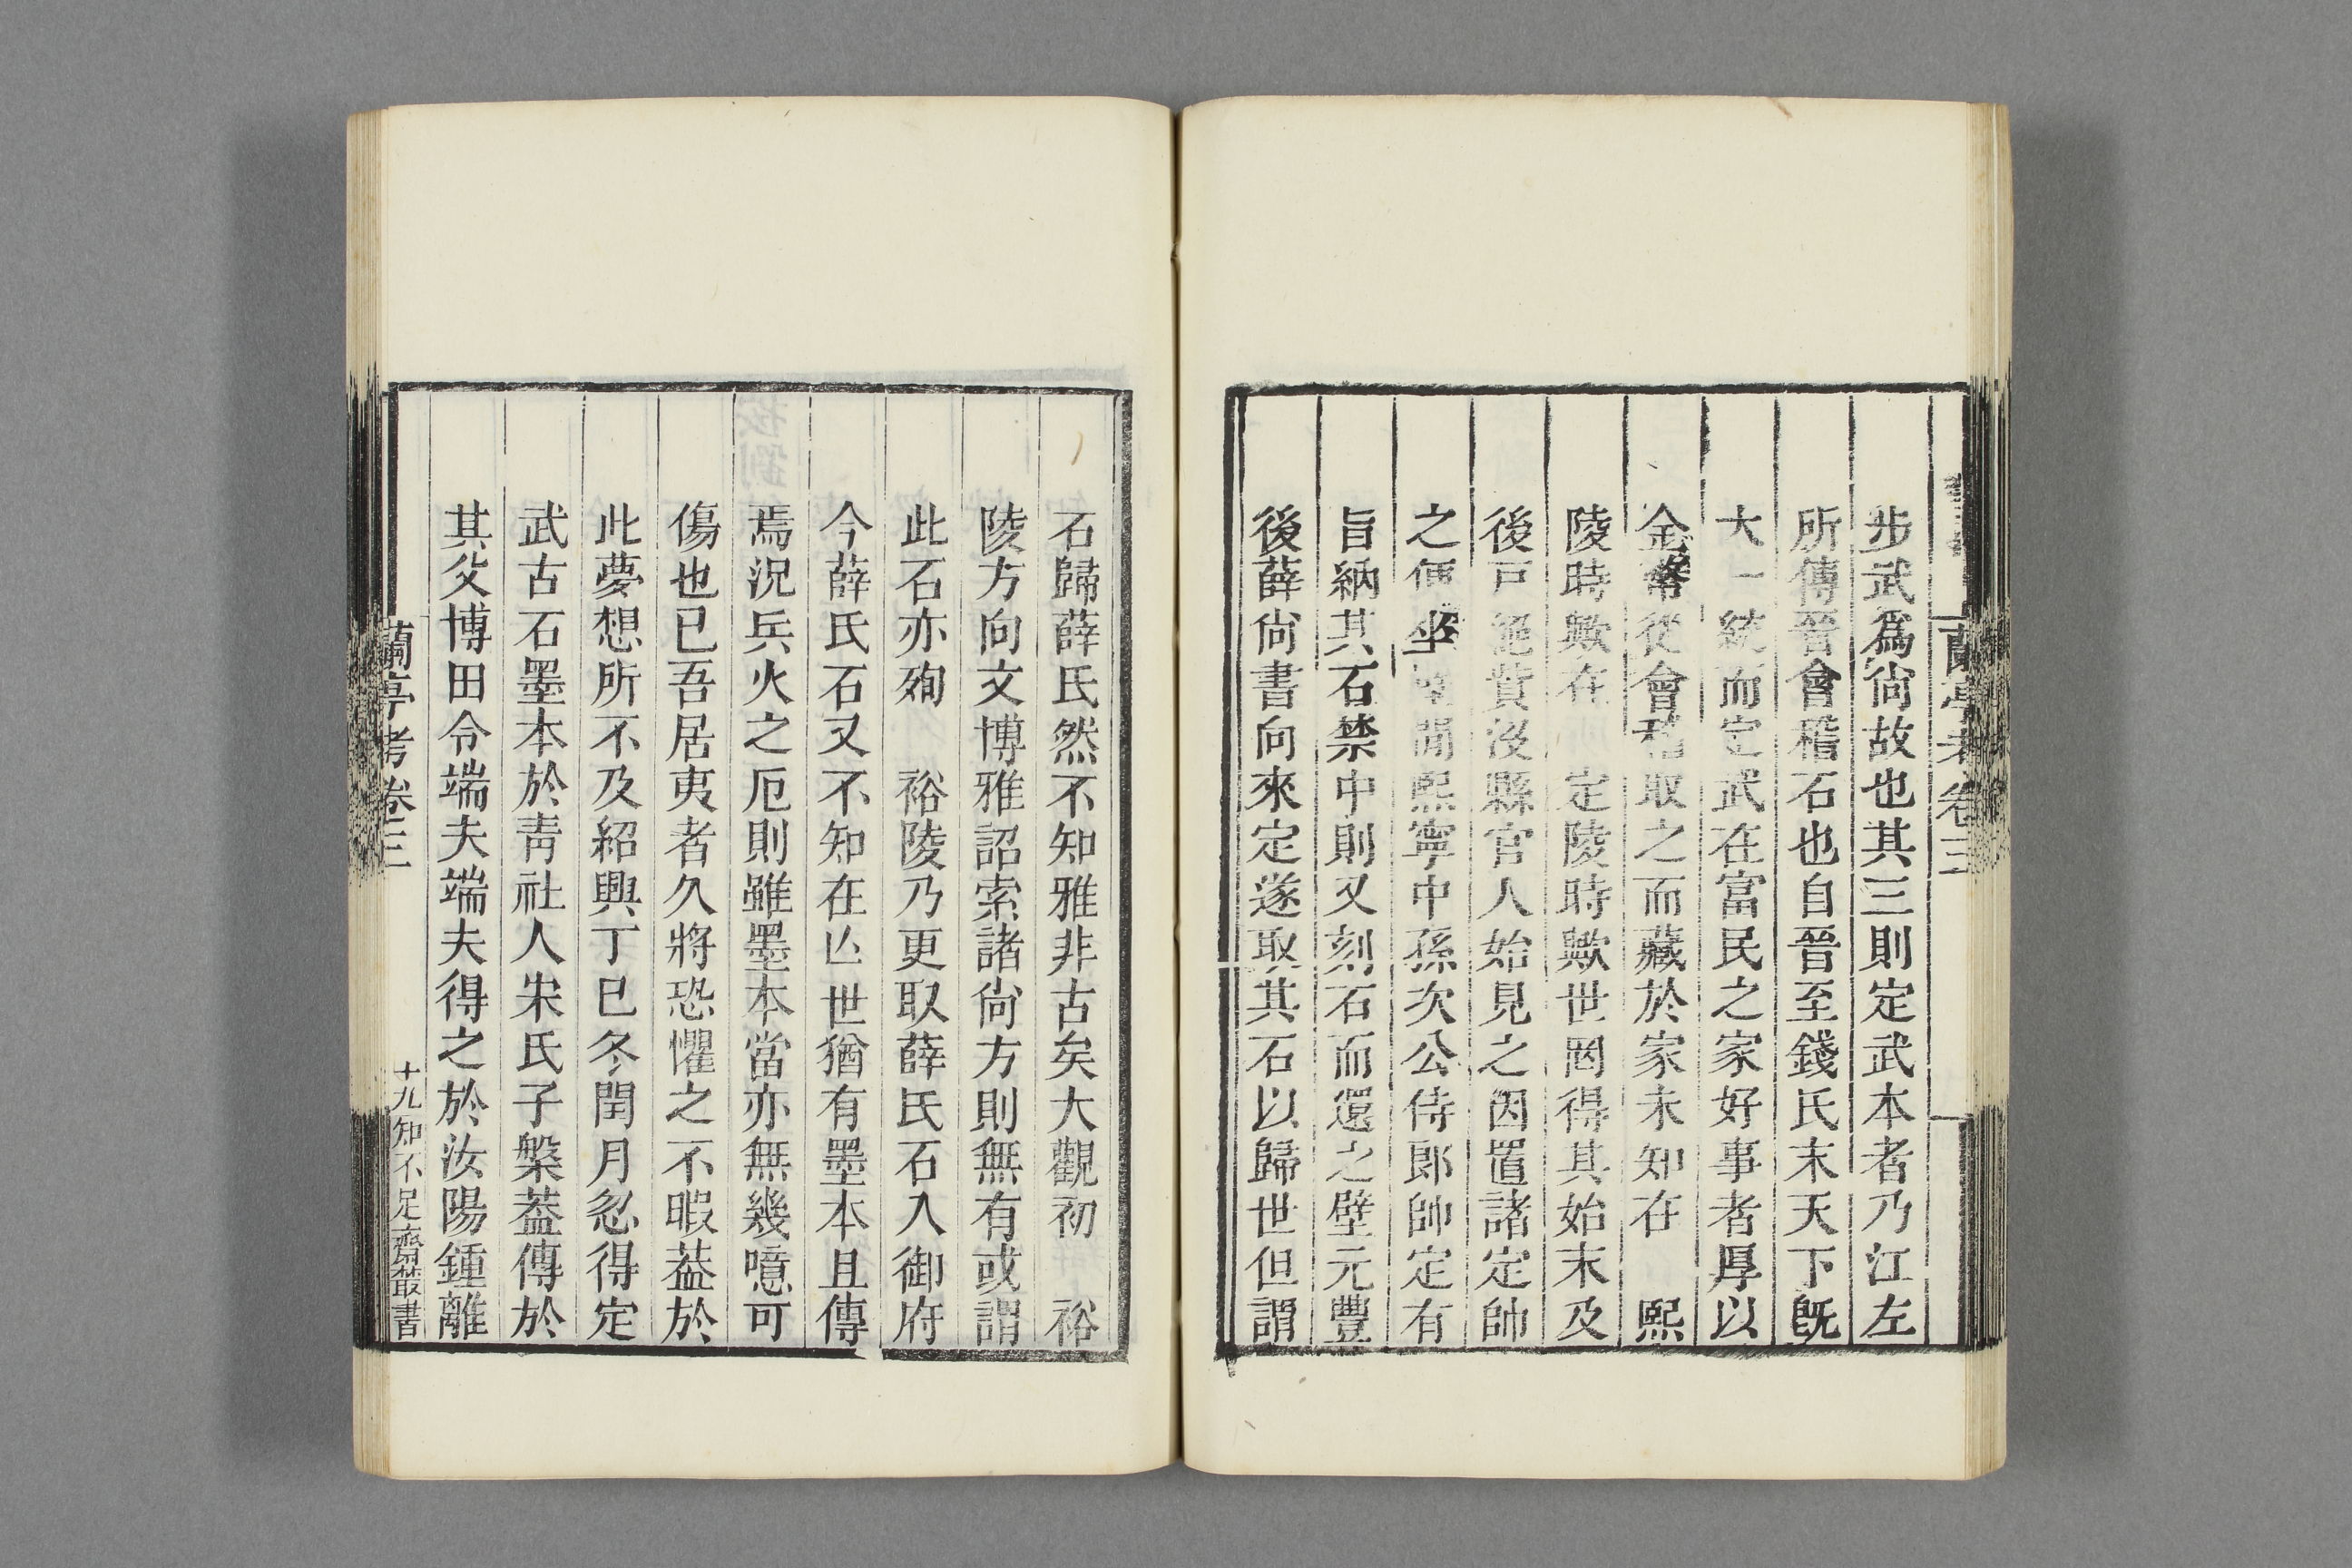 蘭亭考卷三
步武爲尙故也其三則定武本者乃江左
所傳晉會稽石也自晉至錢氏末天下旣
大一統而定武在富民之家好事者厚以
金幣從會稽取之而藏於家未知在 熙
陵時歟在 定陵時歟世罔得其始末及
後戸絕貲沒縣官人始見之因置諸定帥
之便坐 閒熙寧中孫次公侍郎帥定有
旨納其石禁中則又刻石而還之壁元豐
後薛尙書向來定遂取其石以歸世但謂
石歸薛氏然不知雅非古矣大觀初 裕
陵方向文博雅詔索諸尙方則無有或謂
此石亦殉 裕陵乃更取薛氏石入御府
今薛氏石又不知在亾世猶有墨本且傳
焉況兵火之厄則雖墨本當亦無幾噫可
傷也已吾居夷者久將恐懼之不暇葢於
此夢想所不及紹興丁巳冬閏月忽得定
武古石墨本於靑社人朱氏子槃葢傳於
其父博田令端夫端夫得之於汝陽鍾離
蘭亭考卷三
十九知不足齋叢書